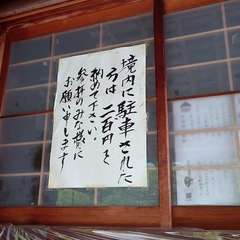 境内に駐車された
方は二百円を
納めて下さい。
参拝のみな様に
お願い申します